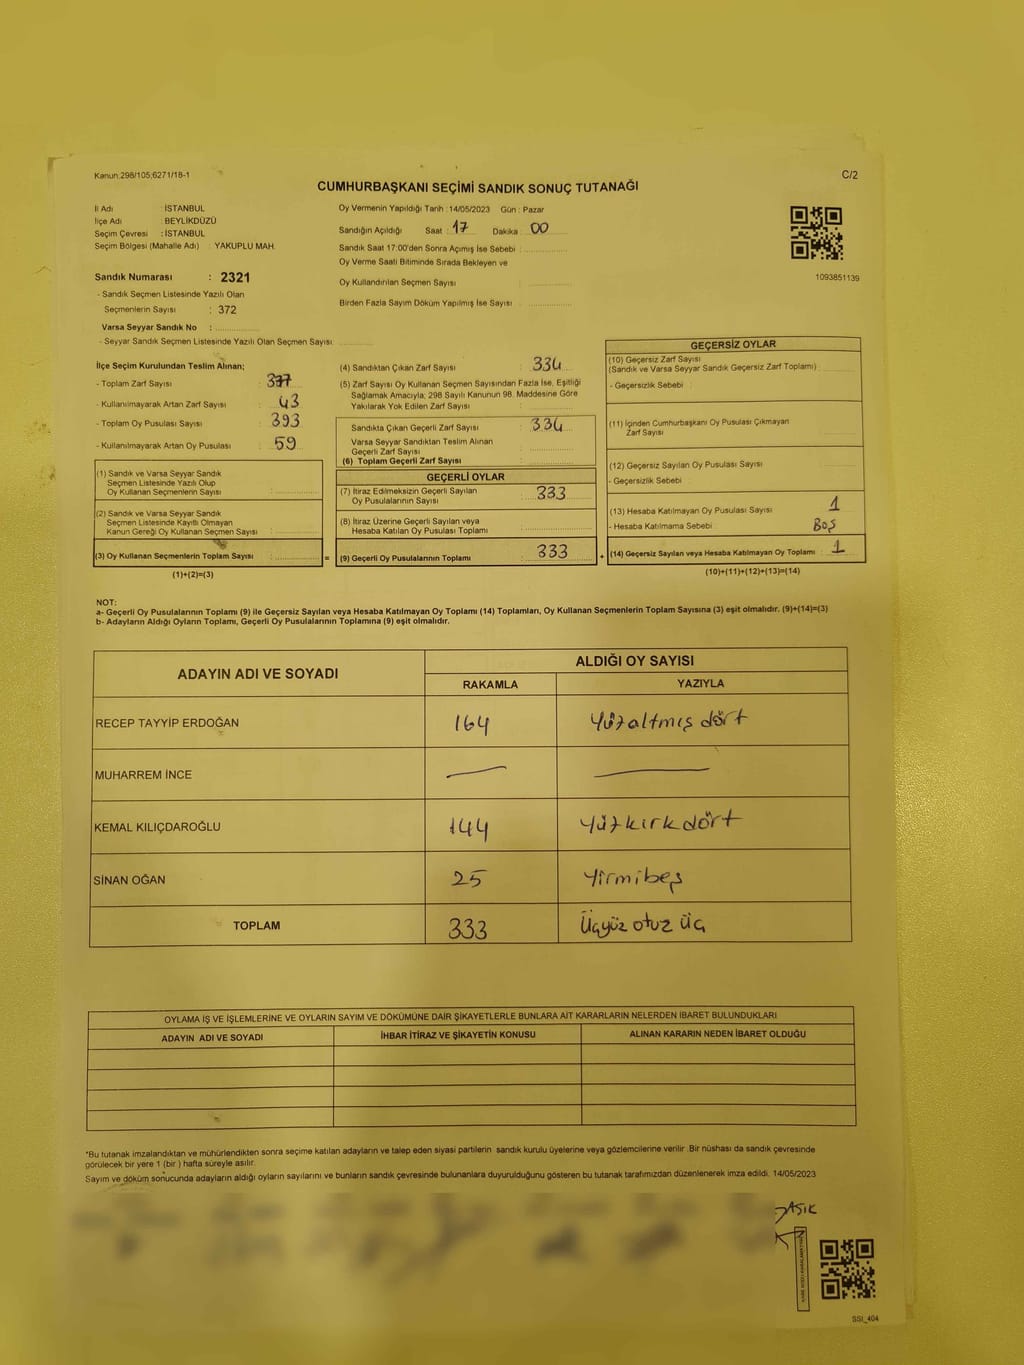 Kanun:298/105;6271/18-1
C/2
CUMHURBAŞKANI SEÇİMİ SANDIK SONUÇ TUTANAĞI
İl Adı : İSTANBUL
İlçe Adı : BEYLİKDÜZÜ
Seçim Çevresi : İSTANBUL
Seçim Bölgesi (Mahalle Adı) : YAKUPLU MAH.
Oy Vermenin Yapıldığı Tarih : 14/05/2023 Gün : Pazar
Sandığın Açıldığı Saat : 17 Dakika : 00
Sandık Saat 17:00'den Sonra Açılmış İse Sebebi :
Oy Verme Saati Bitiminde Sırada Bekleyen ve
Oy Kullandırılan Seçmen Sayısı :
Birden Fazla Sayım Döküm Yapılmış İse Sayısı :
1093851139
Sandık Numarası : 2321
- Sandık Seçmen Listesinde Yazılı Olan
Seçmenlerin Sayısı : 372
Varsa Seyyar Sandık No :
- Seyyar Sandık Seçmen Listesinde Yazılı Olan Seçmen Sayısı:
İlçe Seçim Kurulundan Teslim Alınan;
- Toplam Zarf Sayısı : 377
- Kullanılmayarak Artan Zarf Sayısı : 43
- Toplam Oy Pusulası Sayısı : 393
- Kullanılmayarak Artan Oy Pusulası : 59
(1) Sandık ve Varsa Seyyar Sandık
Seçmen Listesinde Yazılı Olup
Oy Kullanan Seçmenlerin Sayısı :
(2) Sandık ve Varsa Seyyar Sandık
Seçmen Listesinde Kayıtlı Olmayan
Kanun Gereği Oy Kullanan Seçmen Sayısı :
(3) Oy Kullanan Seçmenlerin Toplam Sayısı :
(1)+(2)=(3)
(4) Sandıktan Çıkan Zarf Sayısı : 334
(5) Zarf Sayısı Oy Kullanan Seçmen Sayısından Fazla İse, Eşitliği
Sağlamak Amacıyla; 298 Sayılı Kanunun 98. Maddesine Göre
Yakılarak Yok Edilen Zarf Sayısı :
Sandıkta Çıkan Geçerli Zarf Sayısı : 334
Varsa Seyyar Sandıktan Teslim Alınan
Geçerli Zarf Sayısı :
(6) Toplam Geçerli Zarf Sayısı :
GEÇERLİ OYLAR
(7) İtiraz Edilmeksizin Geçerli Sayılan
Oy Pusulalarının Sayısı : 333
(8) İtiraz Üzerine Geçerli Sayılan veya
Hesaba Katılan Oy Pusulası Toplamı :
= (9) Geçerli Oy Pusulalarının Toplamı : 333
GEÇERSİZ OYLAR
(10) Geçersiz Zarf Sayısı
(Sandık ve Varsa Seyyar Sandık Geçersiz Zarf Toplamı) :
- Geçersizlik Sebebi :
(11) İçinden Cumhurbaşkanı Oy Pusulası Çıkmayan
Zarf Sayısı :
(12) Geçersiz Sayılan Oy Pusulası Sayısı :
- Geçersizlik Sebebi :
(13) Hesaba Katılmayan Oy Pusulası Sayısı : 1
- Hesaba Katılmama Sebebi : Boş
+ (14) Geçersiz Sayılan veya Hesaba Katılmayan Oy Toplamı : 1
(10)+(11)+(12)+(13)=(14)
NOT:
a- Geçerli Oy Pusulalarının Toplamı (9) ile Geçersiz Sayılan veya Hesaba Katılmayan Oy Toplamı (14) Toplamları, Oy Kullanan Seçmenlerin Toplam Sayısına (3) eşit olmalıdır. (9)+(14)=(3)
b- Adayların Aldığı Oyların Toplamı, Geçerli Oy Pusulalarının Toplamına (9) eşit olmalıdır.
ADAYIN ADI VE SOYADI
ALDIĞI OY SAYISI
RAKAMLA YAZIYLA
RECEP TAYYİP ERDOĞAN 164 Yüzaltmış dört
MUHARREM İNCE
KEMAL KILIÇDAROĞLU 144 Yüzkırk dört
SİNAN OĞAN 25 Yirmibeş
TOPLAM 333 Üçyüz otuz üç
OYLAMA İŞ VE İŞLEMLERİNE VE OYLARIN SAYIM VE DÖKÜMÜNE DAİR ŞİKAYETLERLE BUNLARA AİT KARARLARIN NELERDEN İBARET BULUNDUKLARI
ADAYIN ADI VE SOYADI İHBAR İTİRAZ VE ŞİKAYETİN KONUSU ALINAN KARARIN NEDEN İBARET OLDUĞU
*Bu tutanak imzalandıktan ve mühürlendikten sonra seçime katılan adayların ve talep eden siyasi partilerin sandık kurulu üyelerine veya gözlemcilerine verilir. Bir nüshası da sandık çevresinde
görülecek bir yere 1 (bir ) hafta süreyle asılır.
Sayım ve döküm sonucunda adayların aldığı oyların sayılarını ve bunların sandık çevresinde bulunanlara duyurulduğunu gösteren bu tutanak tarafımızdan düzenlenerek imza edildi. 14/05/2023
AŞIK
SSI_404